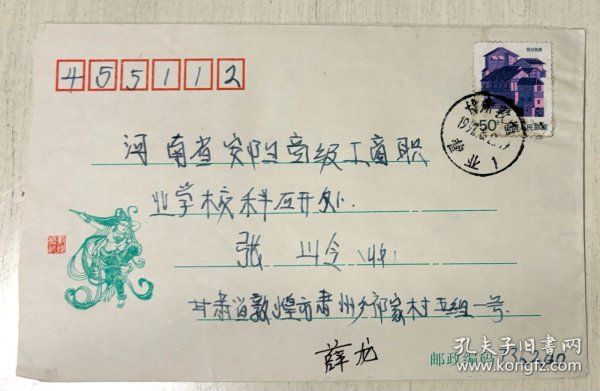 455112
河南省安阳县高级工商职
业学校科研处
张 (收)
甘肃省敦煌市肃州乡祁家村五组一号.
薛龙
邮政编码 736200
50
中国人民邮政
甘肃敦煌
孔夫子旧书网
www.kongfz.com